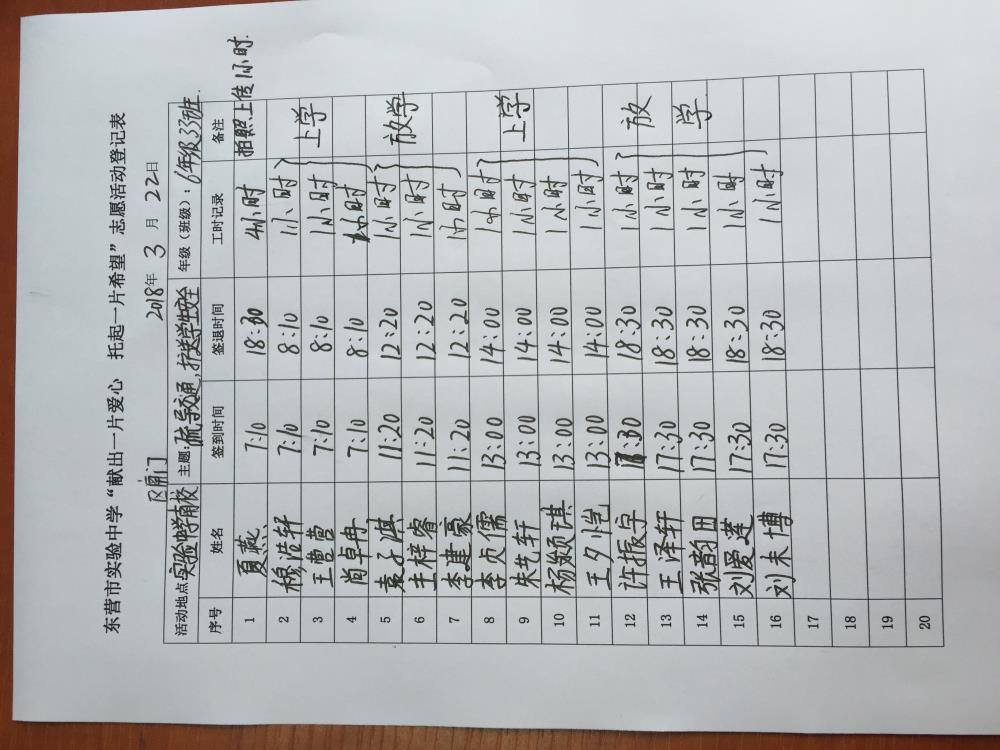 东营市实验中学“献出一片爱心 托起一片希望”志愿活动登记表
2018年 3 月 22日
活动地点 实验中学南校 西门 主题：疏导交通，护送学生安全 年级（班级）：6年级33班
序号 姓名 签到时间 签退时间 工时记录 备注
1 夏燕 7:10 18:30 4小时 拍照上传1小时.
2 穆浩轩 7:10 8:10 1小时 上学
3 王曹营 7:10 8:10 1小时
4 尚卓冉 7:10 8:10 1小时
5 袁子淇 11:20 12:20 1小时 放学
6 王梓睿 11:20 12:20 1小时
7 李建豪 11:20 12:20 1小时
8 李贞儒 13:00 14:00 1小时 上学
9 朱艺轩 13:00 14:00 1小时
10 杨颍琪 13:00 14:00 1小时
11 王夕恺 13:00 14:00 1小时
12 许振宇 17:30 18:30 1小时 放学
13 王泽轩 17:30 18:30 1小时
14 张韵田 17:30 18:30 1小时
15 刘爱莲 17:30 18:30 1小时
16 刘未博 17:30 18:30 1小时
17
18
19
20